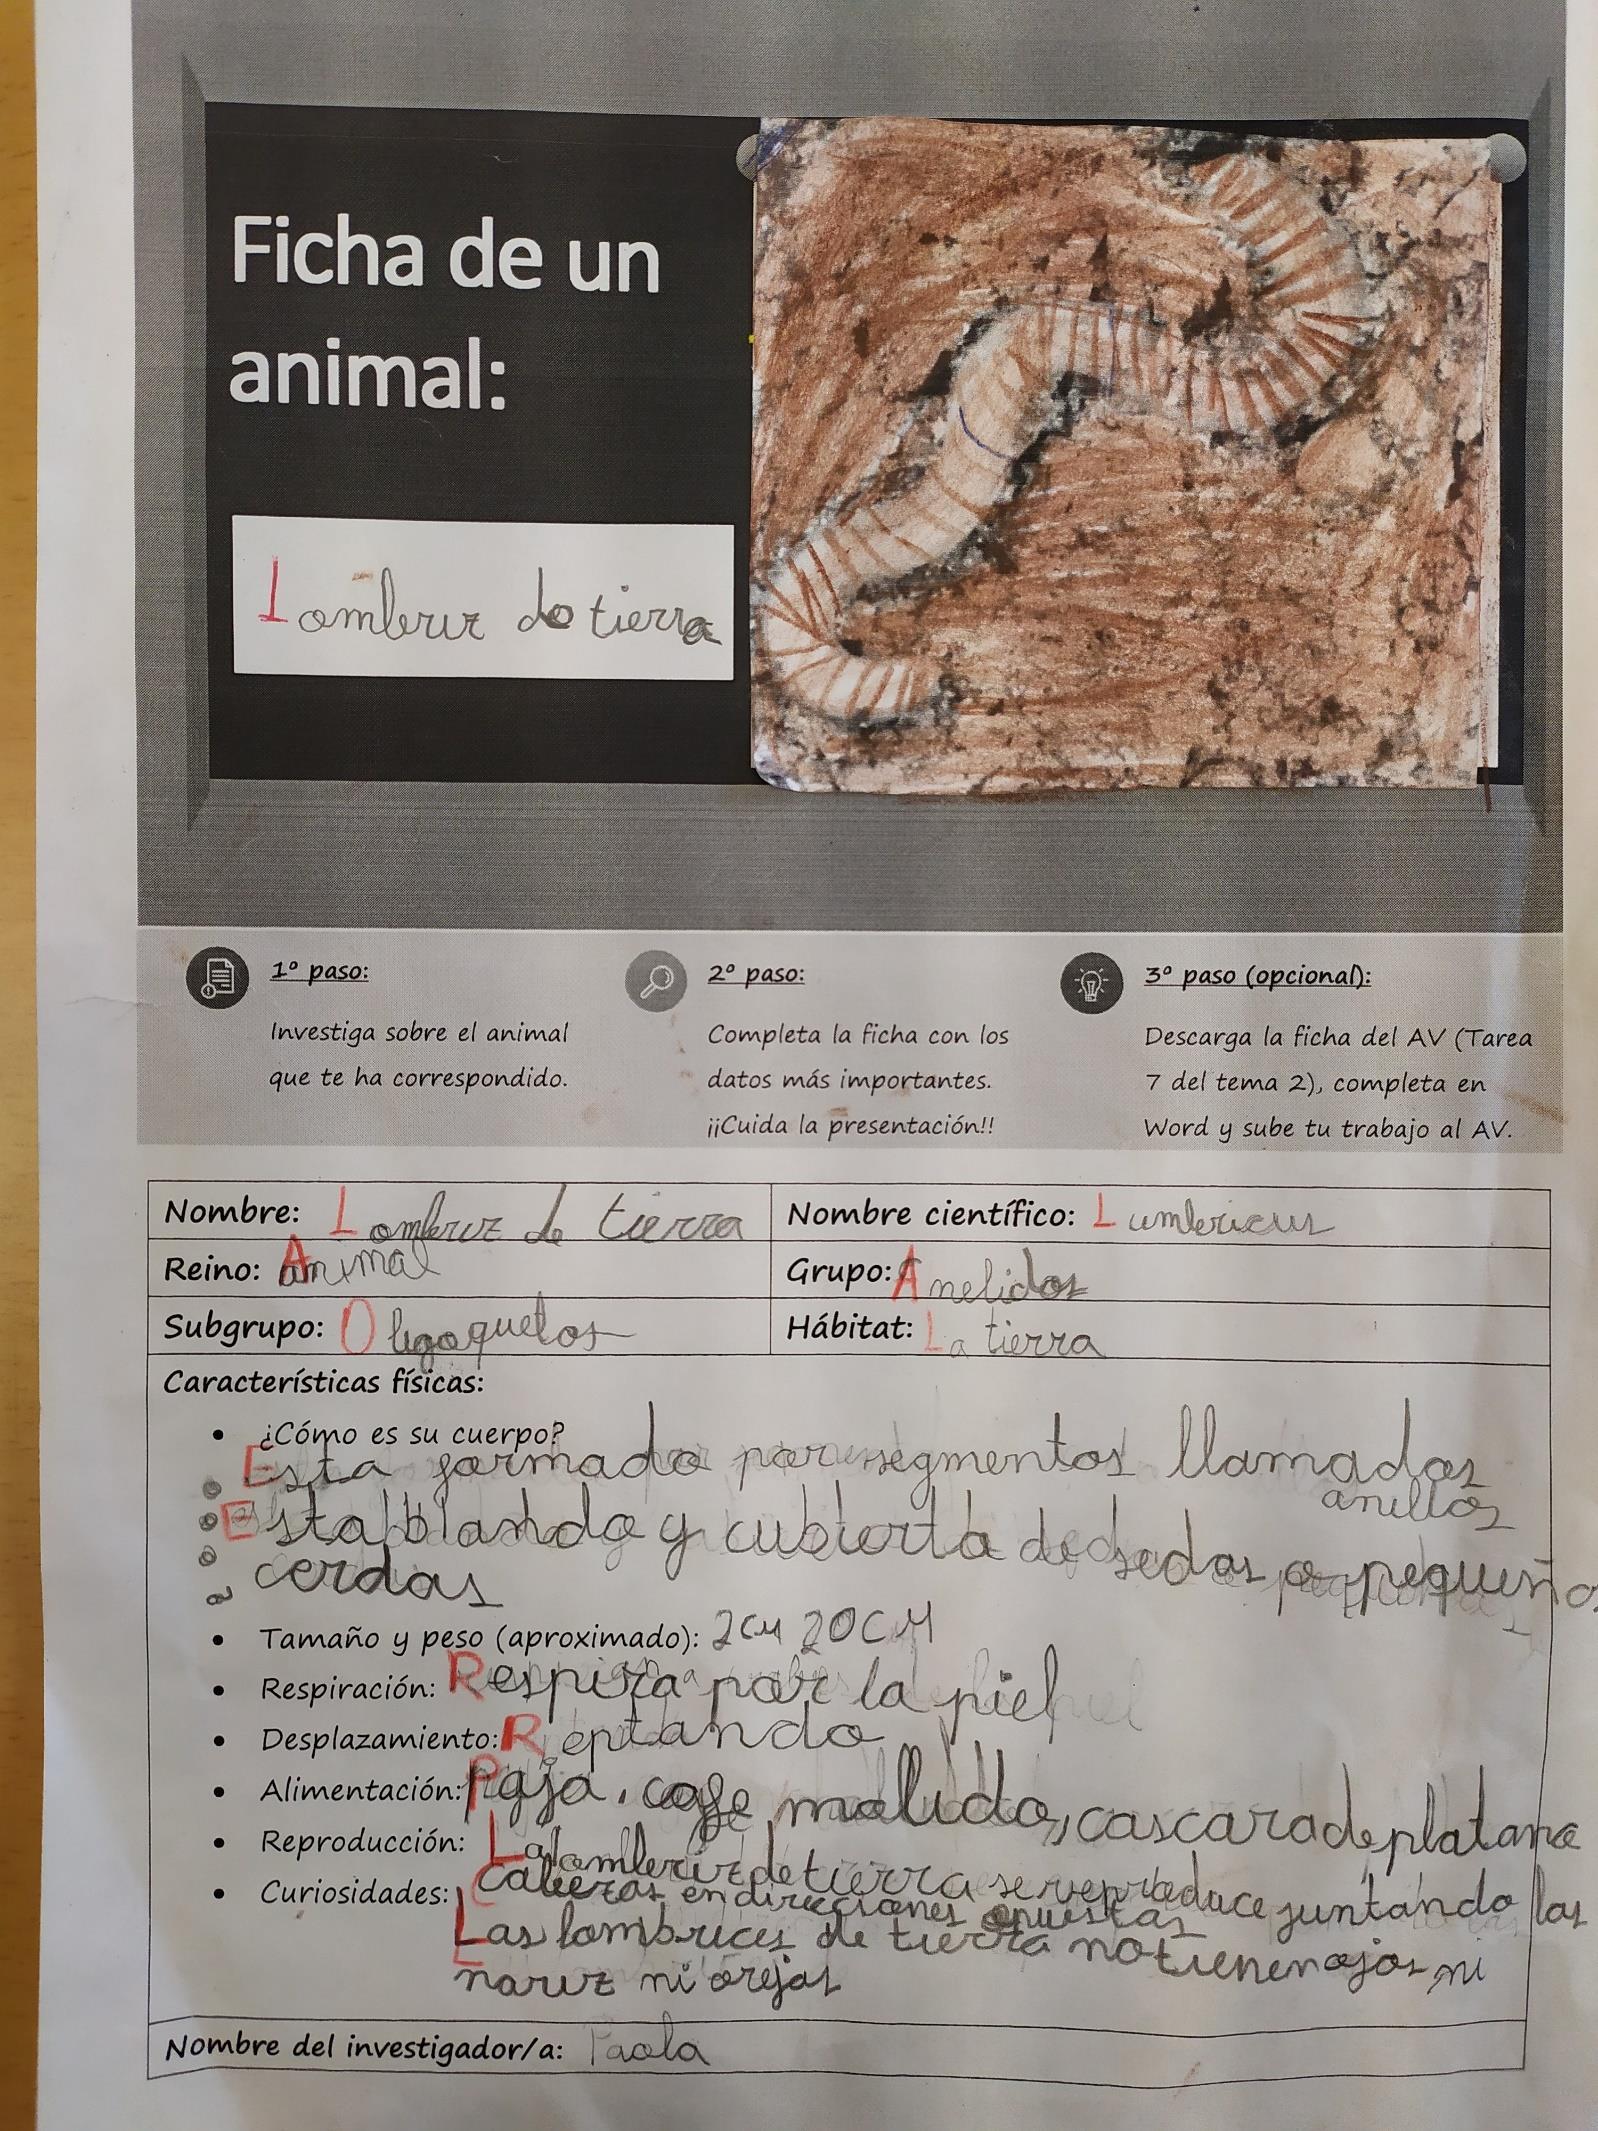 Ficha de un
animal:
Lombriz de tierra
1º paso:
Investiga sobre el animal
que te ha correspondido.
2º paso:
Completa la ficha con los
datos más importantes.
¡¡Cuida la presentación!!
3º paso (opcional):
Descarga la ficha del AV (Tarea
7 del tema 2), completa en
Word y sube tu trabajo al AV.
Nombre: Lombriz de tierra
Nombre científico: Lumbricus
Reino: Animal
Grupo: Anelidos
Subgrupo: Oligoquetos
Hábitat: La tierra
Características físicas:
• ¿Cómo es su cuerpo?
Esta formado por segmentos llamados
anillos
Esta blando y cubierta de sedas o pequeñas
cerdas
• Tamaño y peso (aproximado): 2cm 20CM
• Respiración: Respira por la piel
• Desplazamiento: Reptando
• Alimentación: Paja, cafe molido, cascara de platano
• Reproducción: La lombriz de tierra se reproduce juntando las
cabezas en direcciones opuestas
• Curiosidades: Las lombrices de tierra no tienen ojos, ni
nariz ni orejas
Nombre del investigador/a: Paola